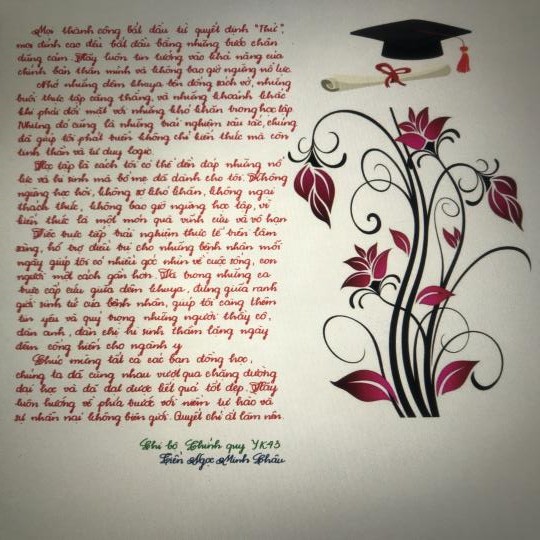 Mọi thành công bắt đầu từ quyết định "Thử",
mọi đỉnh cao đều bắt đầu bằng những bước chân
dũng cảm. Hãy luôn tin tưởng vào khả năng của
chính bản thân mình và không bao giờ ngừng nỗ lực.
Nhớ những đêm khuya bên đống sách vở, những
buổi thực tập căng thẳng, và những khoảnh khắc
khi phải đối mặt với những khó khăn trong học tập.
Nhưng đó cũng là những trải nghiệm sâu sắc, chúng
đã giúp tôi phát triển không chỉ kiến thức mà còn
tinh thần và tư duy logic.
Học tập là cách tôi có thể đền đáp những nỗ
lực và hi sinh mà bố mẹ đã dành cho tôi. Không
ngừng học hỏi, không sợ khó khăn, không ngại
thách thức, không bao giờ ngừng học tập, vì
kiến thức là một món quà vĩnh cửu và vô hạn
Việc trực tiếp trải nghiệm thực tế trên lâm
sàng, hỗ trợ điều trị cho những bệnh nhân mỗi
ngày giúp tôi có nhiều góc nhìn về cuộc sống, con
người một cách gần hơn. Và trong những ca
trực cấp cứu giữa đêm khuya, đứng giữa ranh
giới sinh tử của bệnh nhân, giúp tôi càng thêm
tin yêu và quý trọng những người thầy cô,
đàn anh, đàn chị hi sinh thầm lặng ngày
đêm cống hiến cho ngành y
Chúc mừng tất cả các bạn đồng học,
chúng ta đã cùng nhau vượt qua chặng đường
đại học và đã đạt được kết quả tốt đẹp. Hãy
luôn hướng về phía trước với niềm tự hào và
sự nhẫn nại không biên giới. Quyết chí ắt làm nên.
Chi bộ Chính quy YK43
Tiền Ngọc Minh Châu